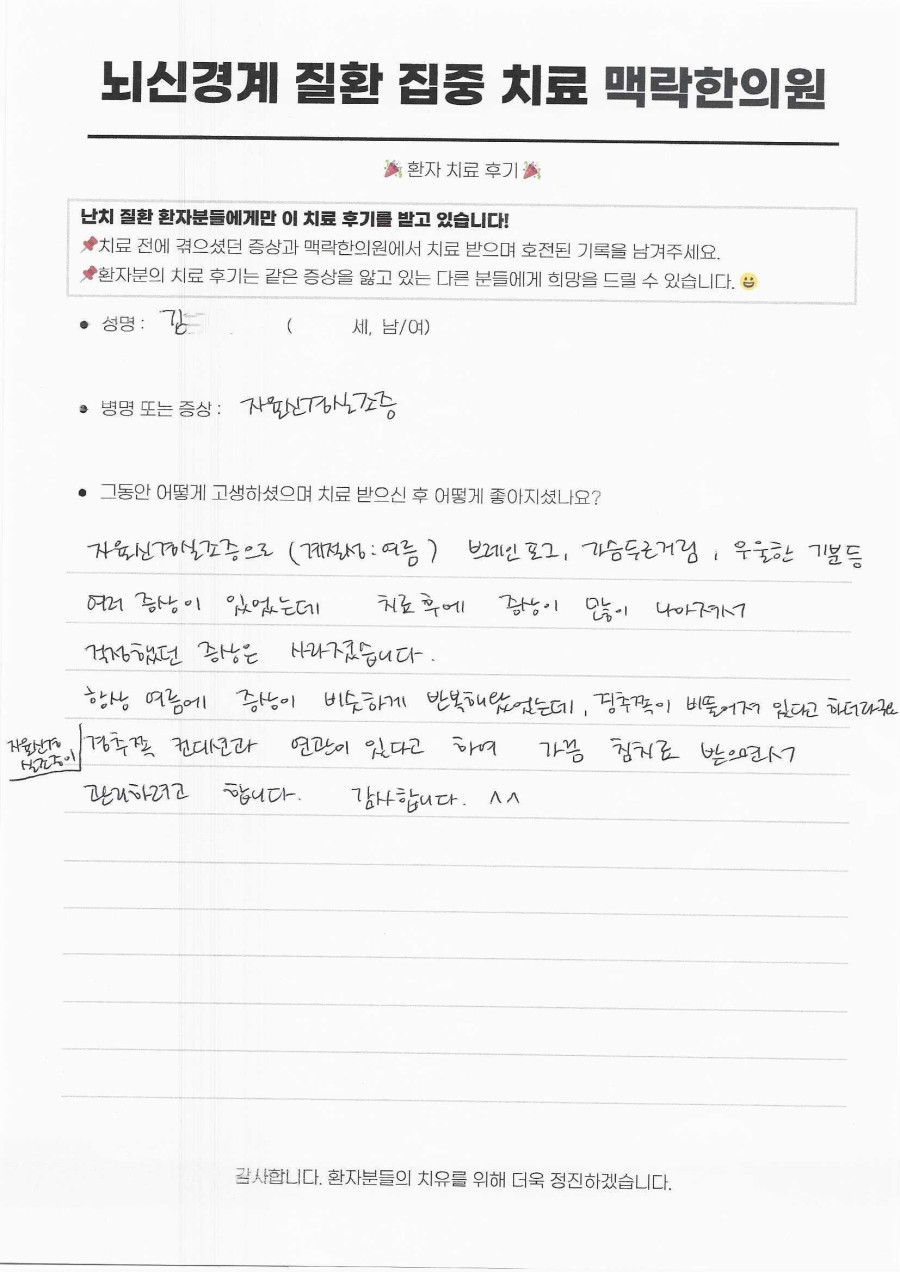 뇌신경계 질환 집중 치료 맥락한의원
환자 치료 후기
난치 질환 환자분들에게만 이 치료 후기를 받고 있습니다!
치료 전에 겪으셨던 증상과 맥락한의원에서 치료 받으며 호전된 기록을 남겨주세요.
환자분의 치료 후기는 같은 증상을 앓고 있는 다른 분들에게 희망을 드릴 수 있습니다.
● 성명 : 김 ( 세, 남/여)
● 병명 또는 증상 : 자율신경실조증
● 그동안 어떻게 고생하셨으며 치료 받으신 후 어떻게 좋아지셨나요?
자율신경실조증으로 (계절성:여름) 브레인포그, 가슴두근거림, 우울한 기분 등
여러 증상이 있었는데 치료후에 증상이 많이 나아져서
걱정했던 증상은 사라졌습니다.
항상 여름에 증상이 비슷하게 반복해왔었는데, 경추쪽이 삐뚤어져 있다고 하더라구요
자율신경실조증이 경추쪽 컨디션과 연관이 있다고 하여 가끔 침치료 받으면서
관리하려고 합니다. 감사합니다. ^^
감사합니다. 환자분들의 치유를 위해 더욱 정진하겠습니다.